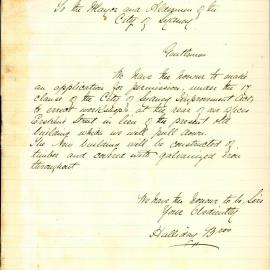 To the Mayor and Aldermen of the
City of Sydney
Gentlemen
We have the honour to make
an application for permission, under the 17
clause of the City of Sydney Improvement Act
to erect workshops at the rear of our offices
Street in lieu of the present old
building which we will pull down.
The New building will be constructed of
timber and covered with galvanized iron
throughout
We have the honour to be, Sirs
Your Obediently
Halliday Bros